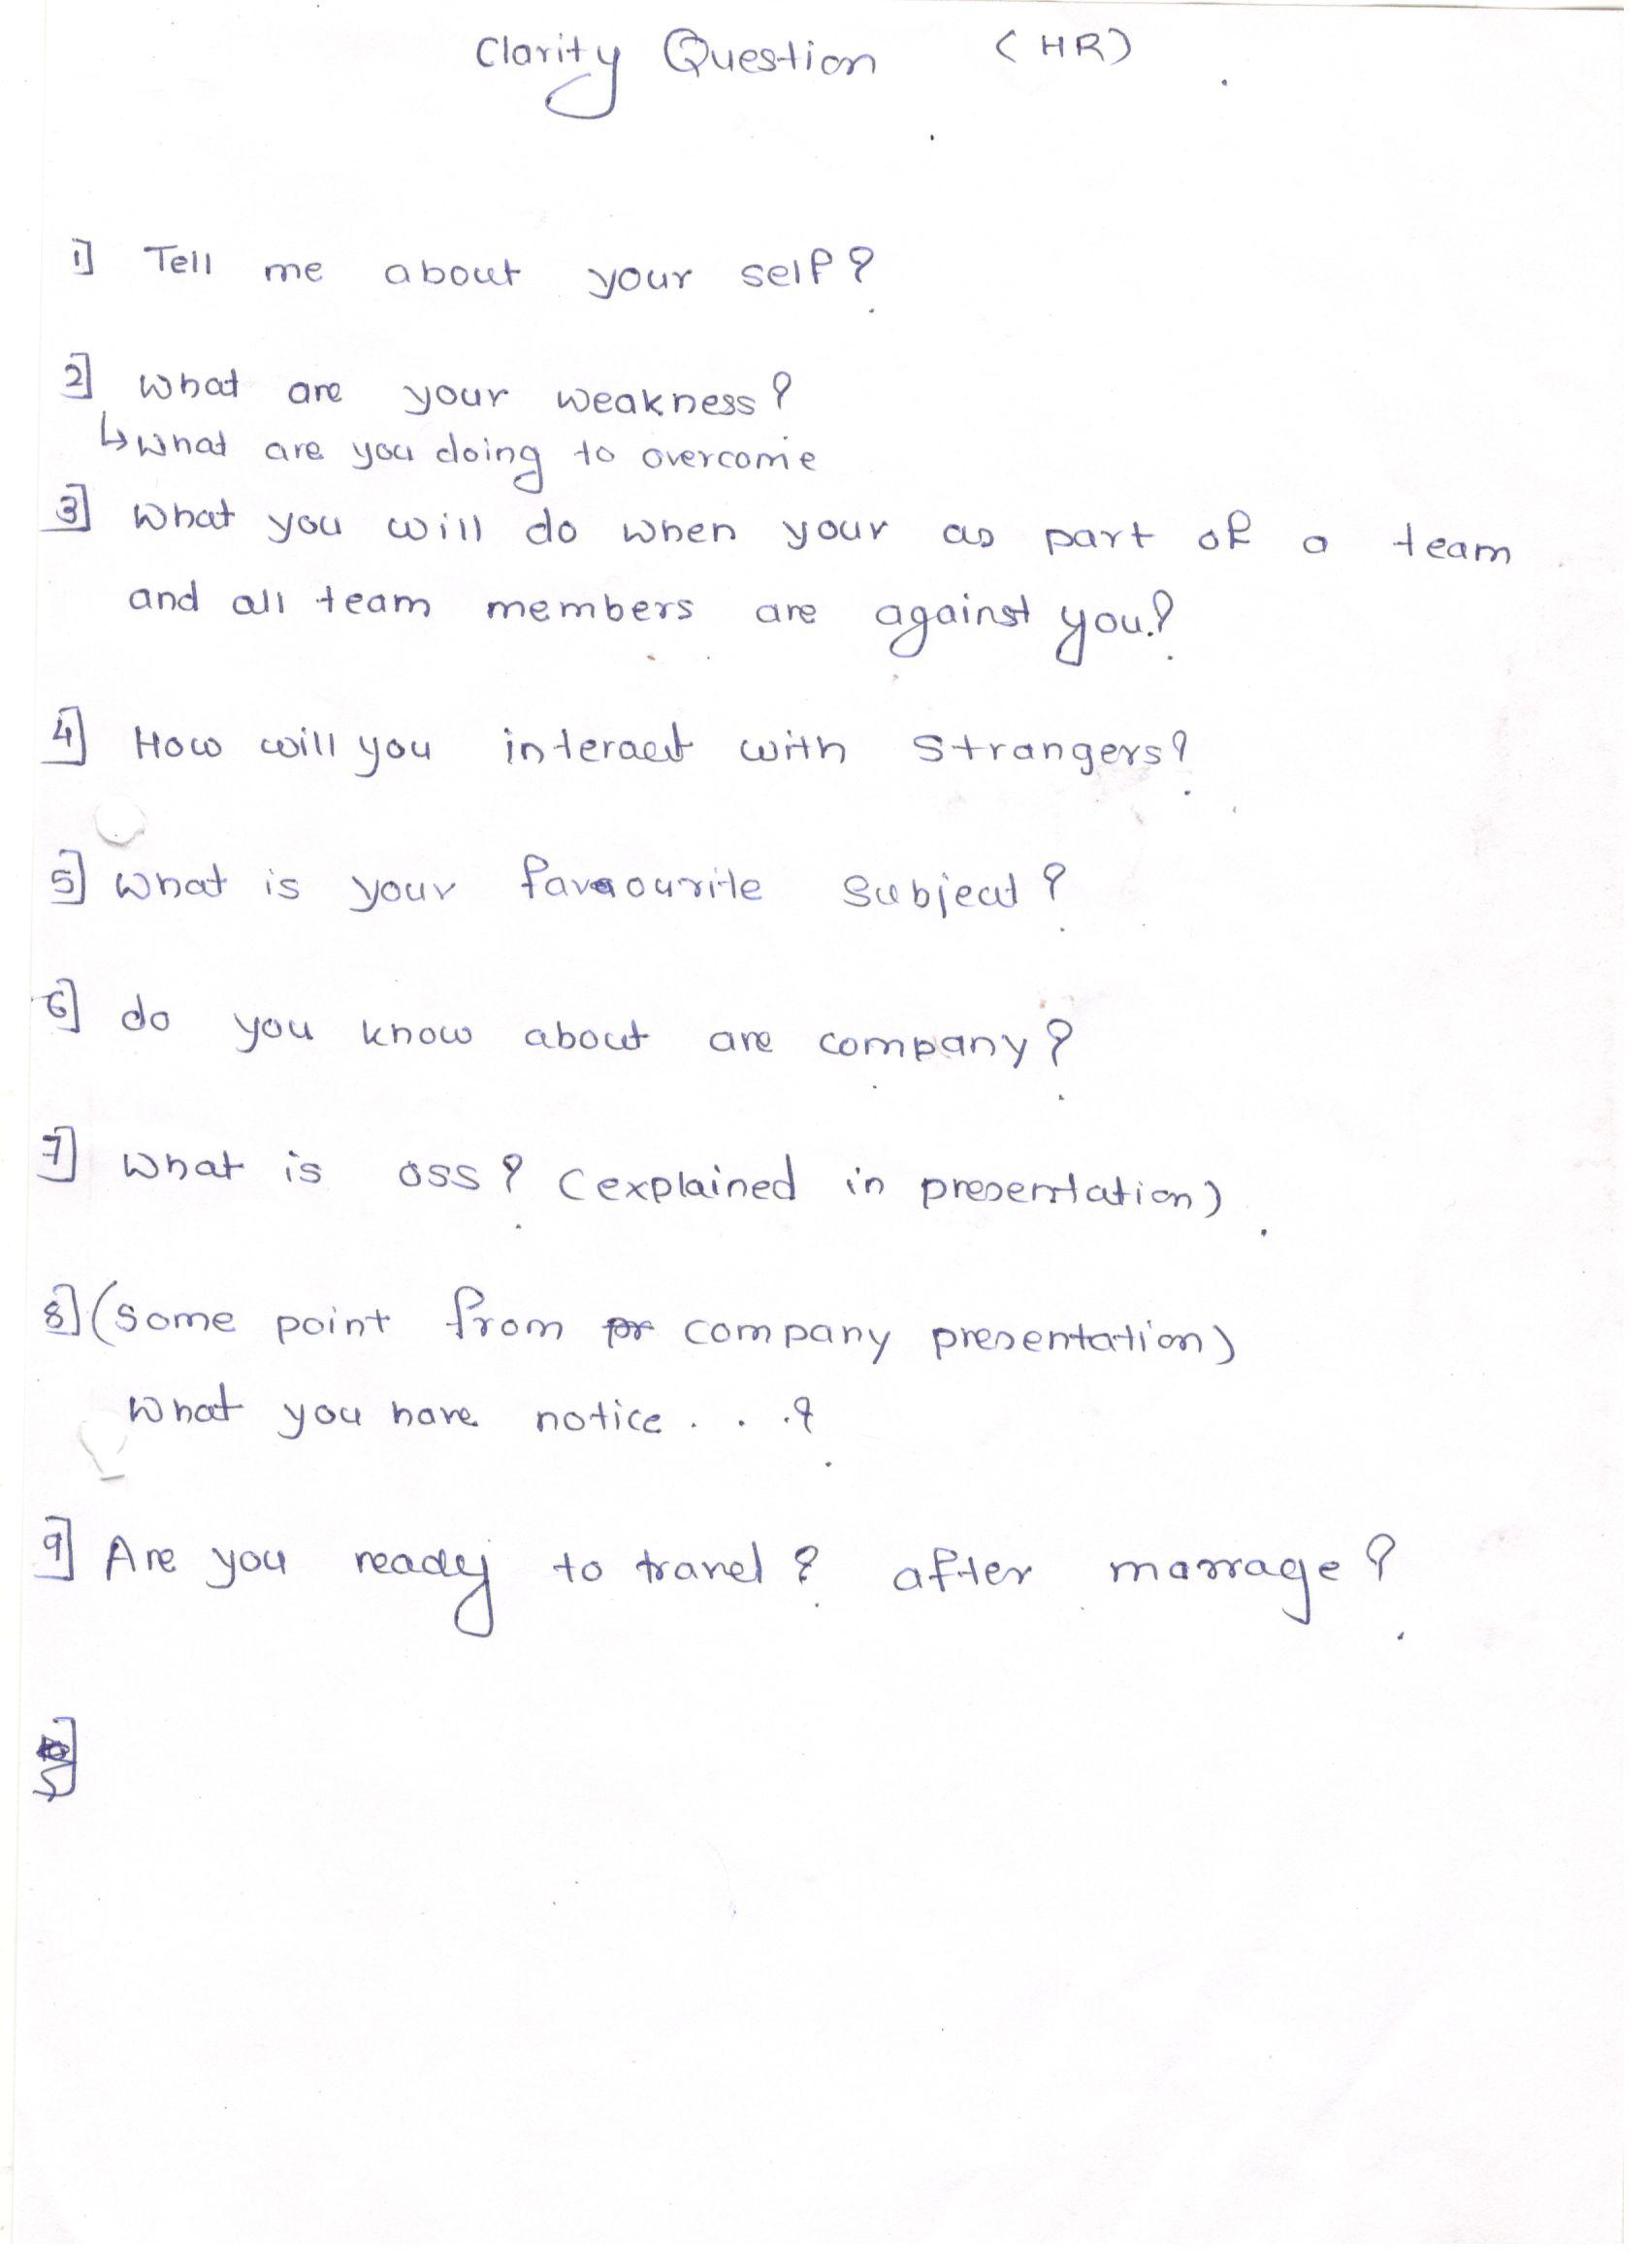 Clarity Question (HR)
1] Tell me about your self?
2] What are your weakness?
↳ what are you doing to overcome
3] What you will do when your as part of a team
and all team members are against you?
4] How will you interact with strangers?
5] What is your favourite subject?
6] do you know about are company?
7] What is OSS? (explained in presentation)
8] (Some point from company presentation)
What you have notice...?
9] Are you ready to travel? after marrage?